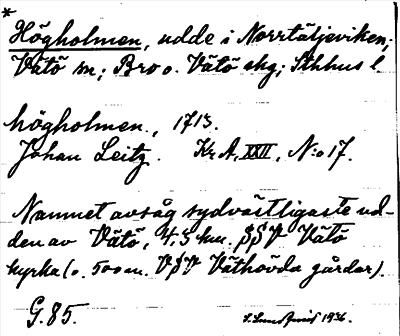 *
Högholmen, udde i Norrtäljeviken;
Vätö sn; Bro o. Vätö skg; Sthlms l.
högholmen, 1713.
Johan Leitz. Kr A, XXII, N:o 17.
Namnet avsåg sydvästligaste ud-
den av Vätö, 4,5 km. SSV Vätö
kyrka (o. 500 m. VSV Väthövda gårdar).
G. 85.
1936.